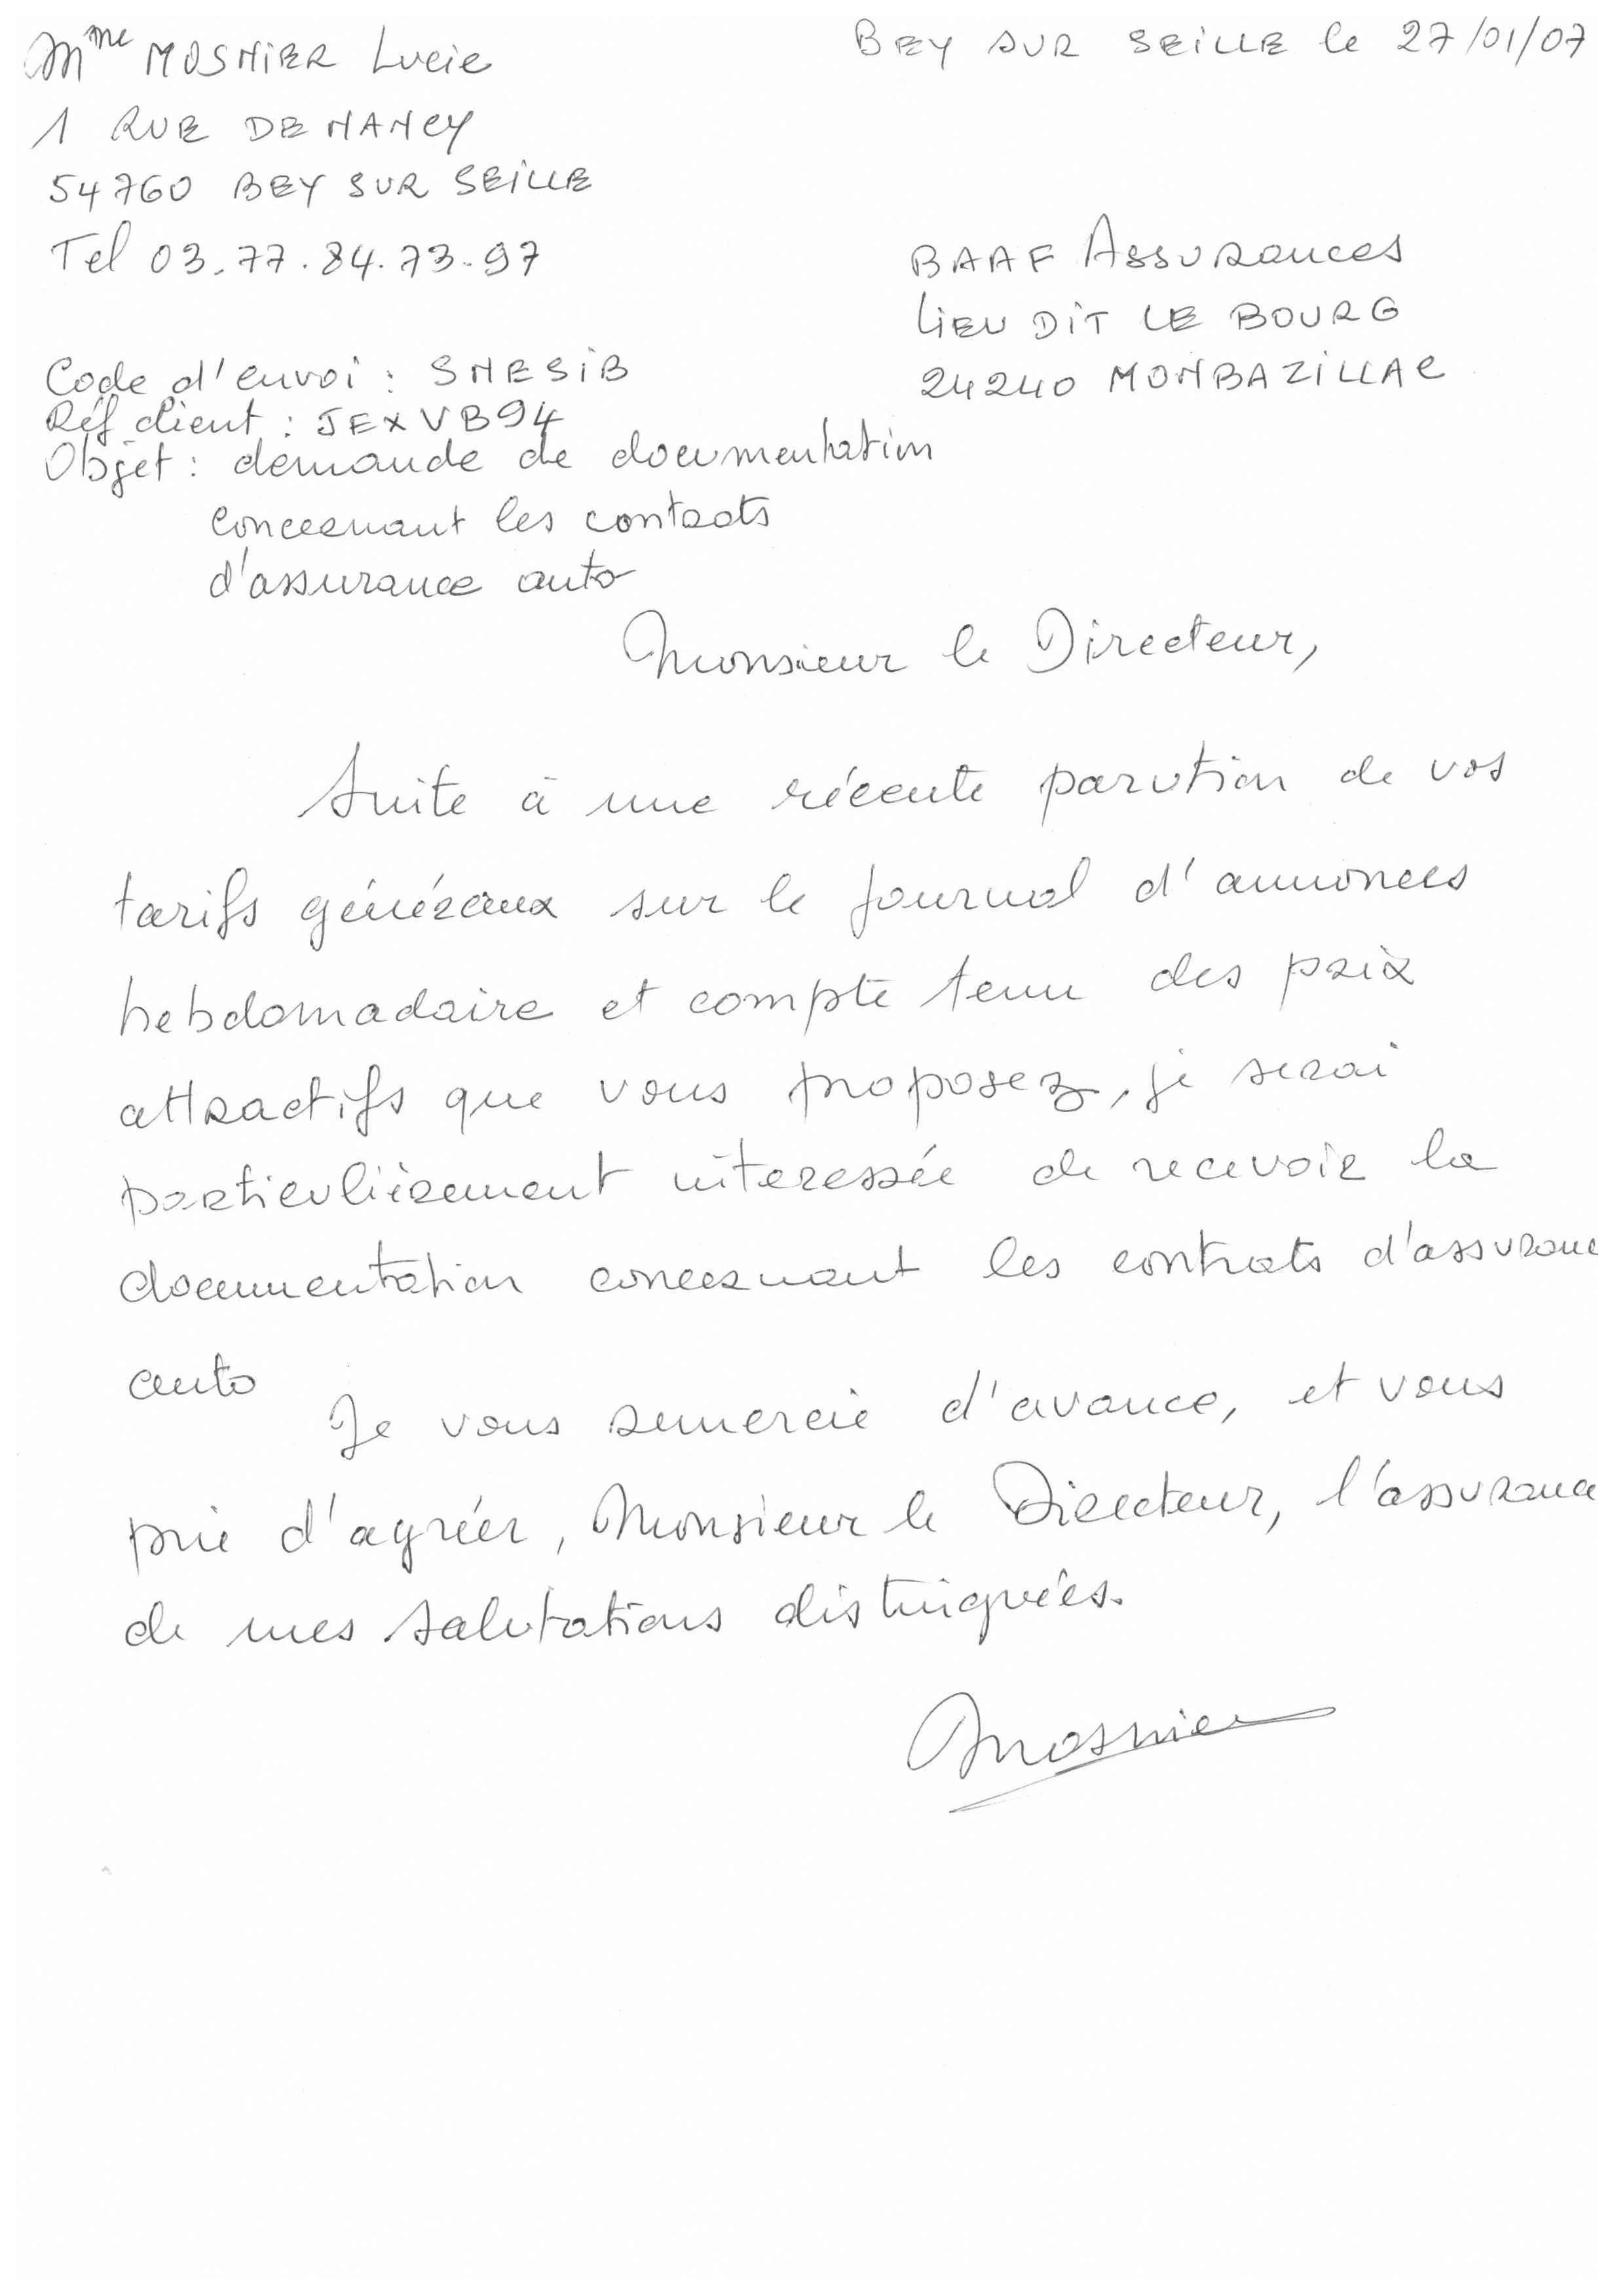 Mme MOSNIER Lucie
BEY SUR SEILLE le 27/01/07
1 RUE DE NANCY
54760 BEY SUR SEILLE
Tel 03.77.84.73.97
BAAF Assurances
LIEU DIT LE BOURG
24240 MONBAZILLAC
Code d'envoi : SNESIB
Réf client : JEXVB94
Objet : demande de documentation
concernant les contrats
d'assurance auto
Monsieur le Directeur,
Suite à une récente parution de vos
tarifs généraux sur le journal d'annonces
hebdomadaire et compte tenu des prix
attractifs que vous proposez, je serai
particulièrement interessée de recevoir la
documentation concernant les contrats d'assurance
auto
Je vous remercie d'avance, et vous
prie d'agréer, Monsieur le Directeur, l'assurance
de mes salutations distinguées.
Mosnier